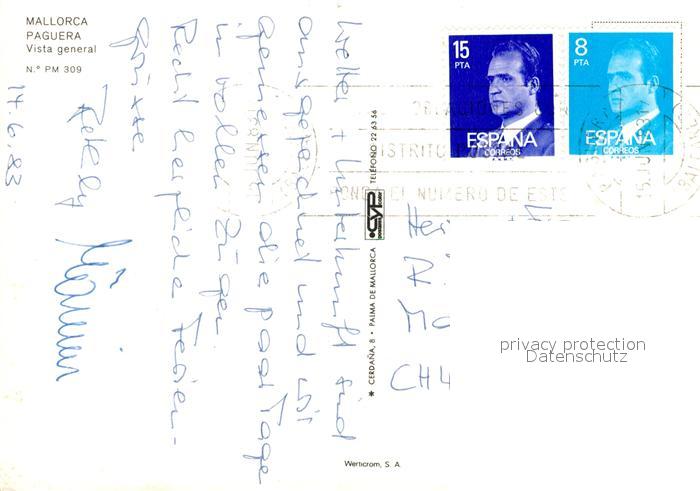 MALLORCA
PAGUERA
Vista general
N.° PM 309
Wetter + Unterkunft sind
ausgezeichnet und wir
geniessen die paar Tage
in vollen Zügen.
Recht herzliche Ferien-
Grüsse
14.6.83
CERDAÑA, 8 • PALMA DE MALLORCA
CYP
TELÉFONO 22 63 56
15
PTA
ESPAÑA
CORREOS
8
PTA
ESPAÑA
CORREOS
DISTRITO
PONGA EL NUMERO DE ESTE
CH4
privacy protection
Datenschutz
Werticrom, S. A.